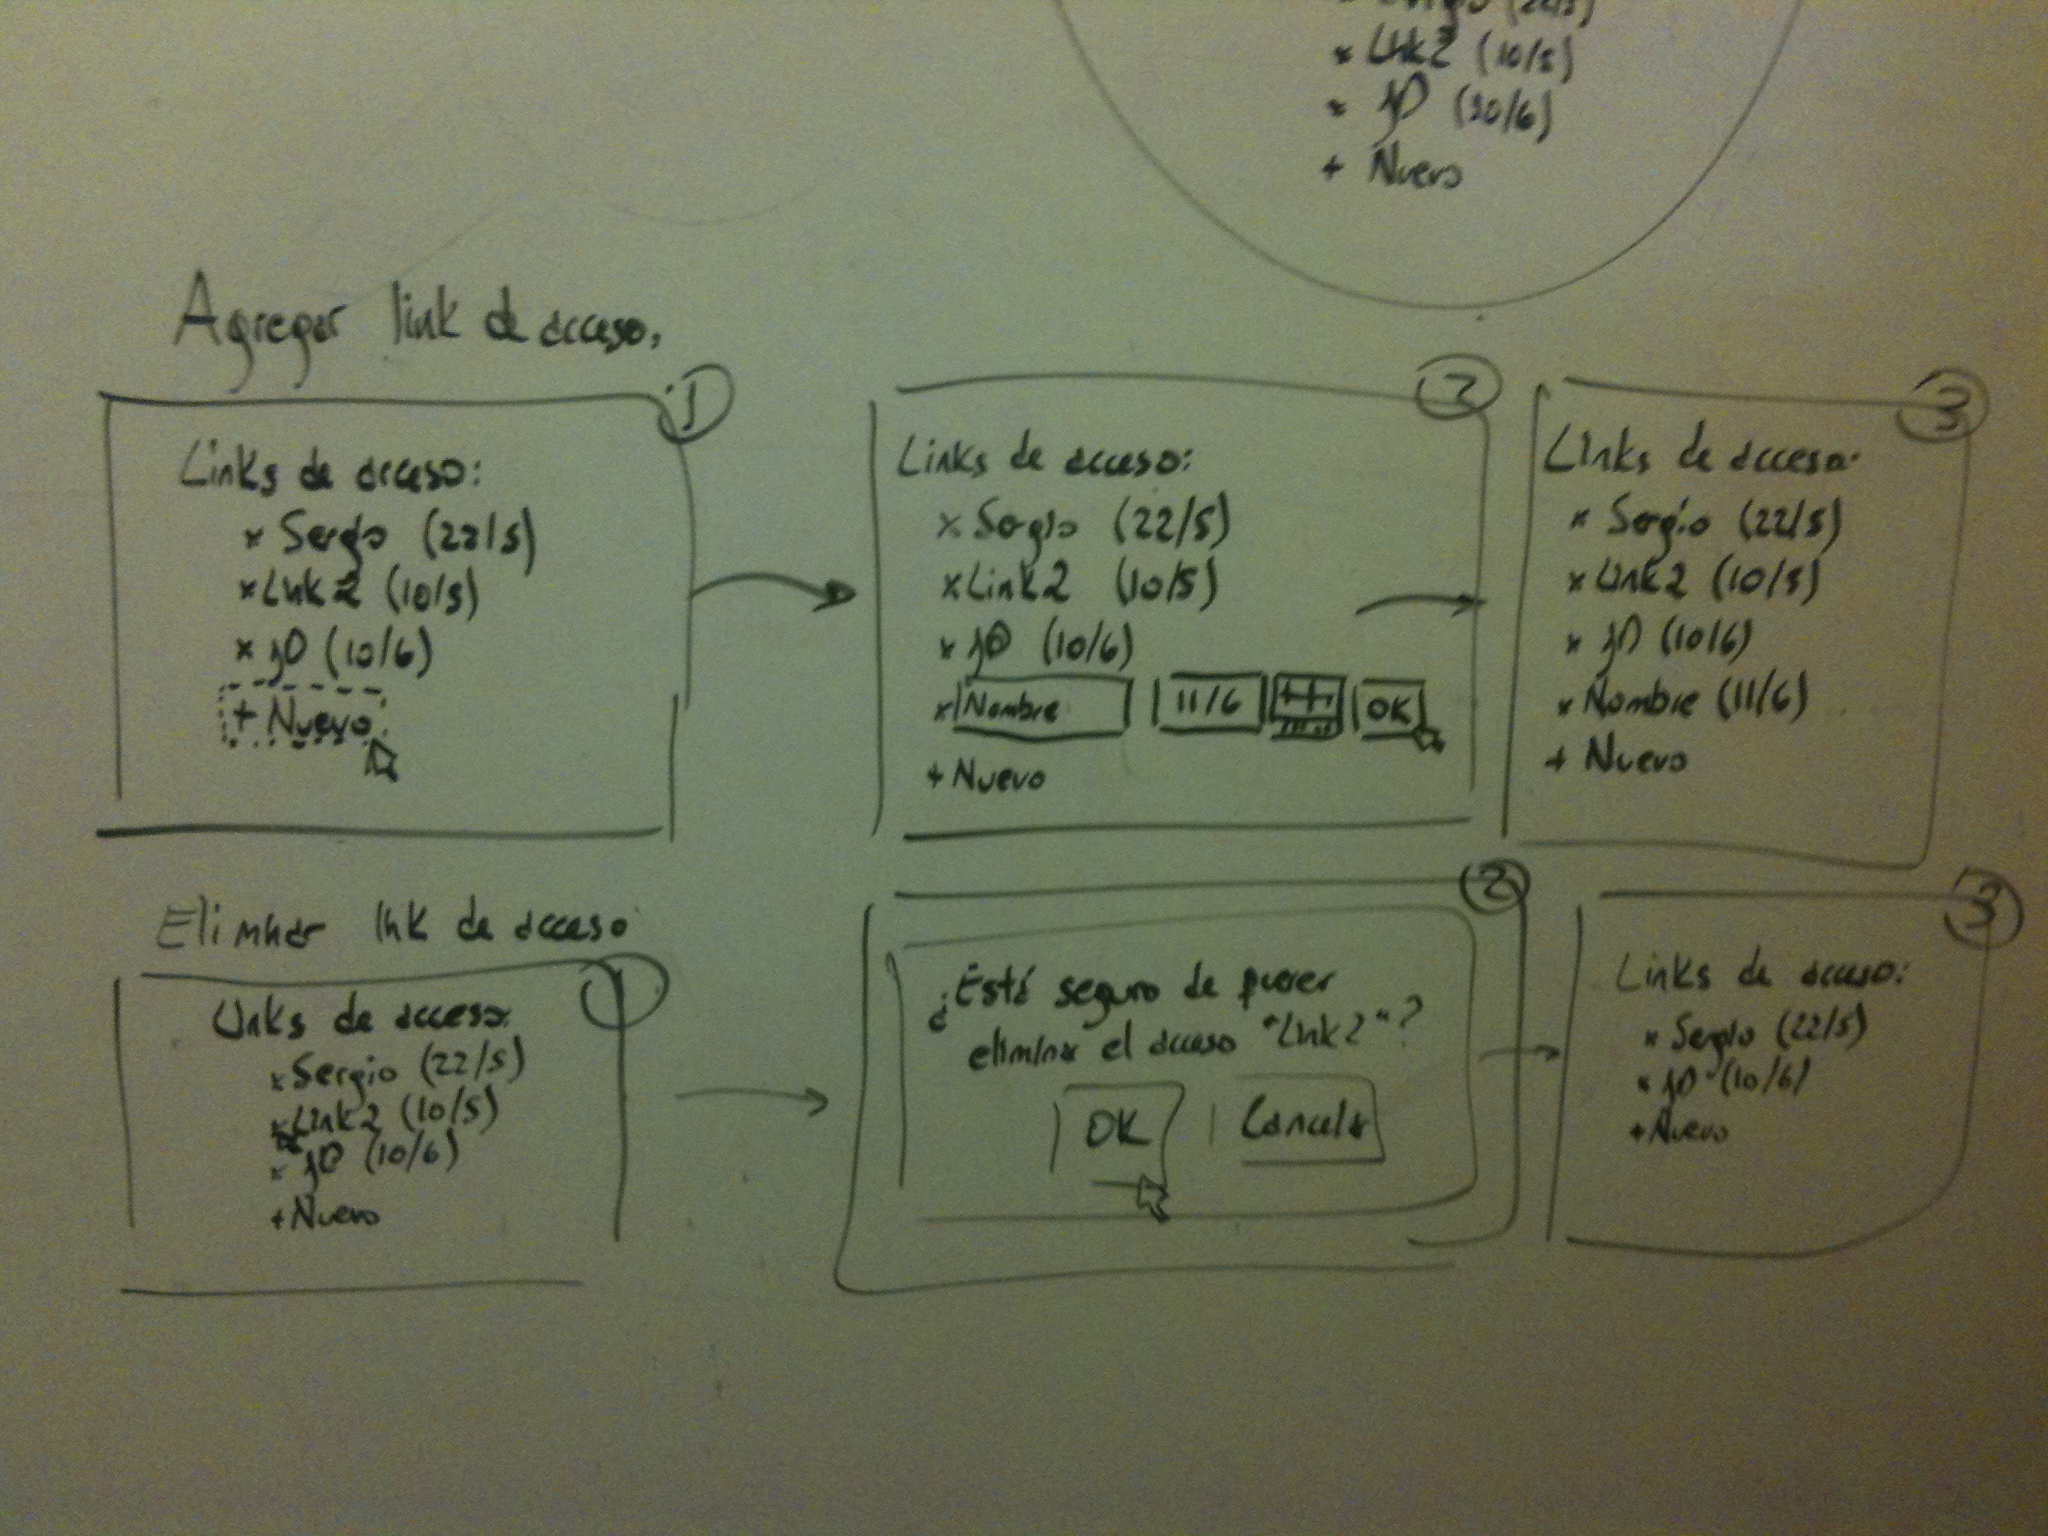 Link2 (10/5)
(10/6)
+ Nuevo
Agregar link de acceso.
1
Links de acceso:
x Sergio (22/5)
x Link2 (10/5)
x JD (10/6)
+ Nuevo
2
Links de acceso:
x Sergio (22/5)
x Link2 (10/5)
x JD (10/6)
x Nombre 11/6 OK
+ Nuevo
3
Links de acceso:
x Sergio (22/5)
x Link2 (10/5)
x JD (10/6)
x Nombre (11/6)
+ Nuevo
Eliminar link de acceso
1
Links de acceso:
x Sergio (22/5)
x Link2 (10/5)
x JD (10/6)
+ Nuevo
2
¿Está seguro de querer
eliminar el acceso "Link2"?
OK Cancelar
3
Links de acceso:
x Sergio (22/5)
x JD (10/6)
+ Nuevo